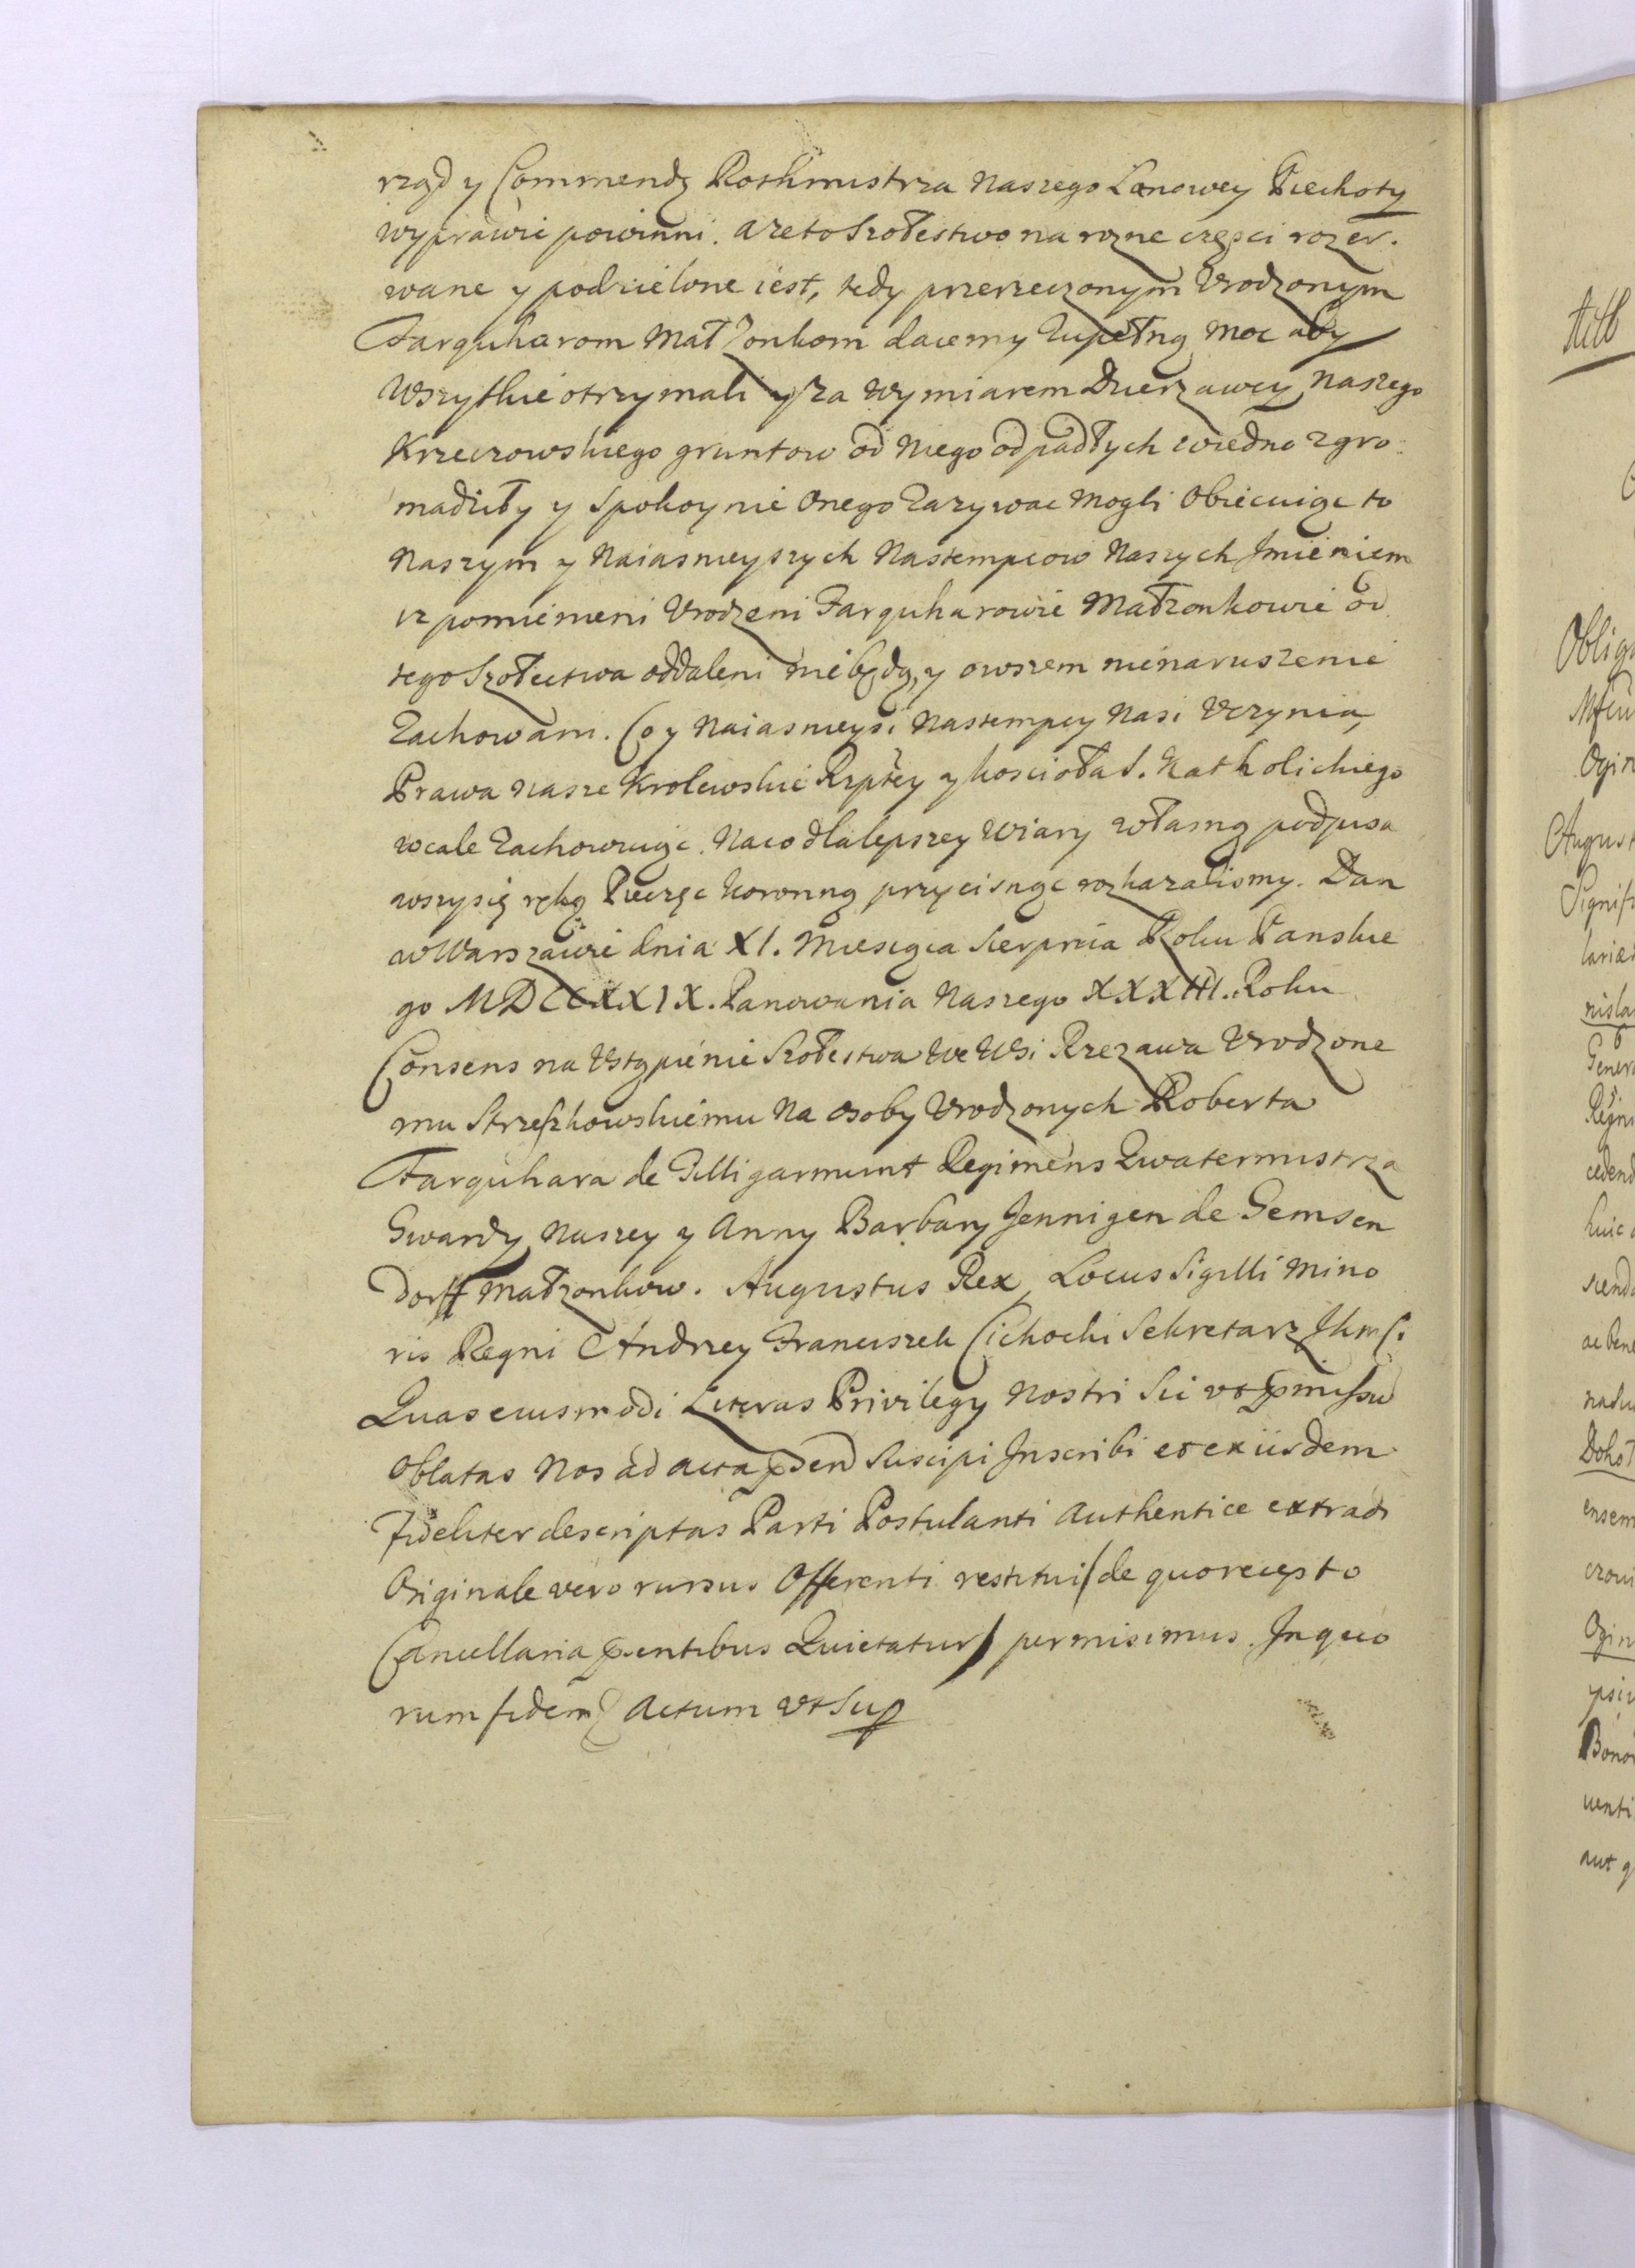 rząd y Commendą Rothmistrza Naszego Lanowey Piechoty
wyprawić powinni. a że to Szołtestwo na rozne części rozer-
wane y podzielone iest, tedy przerzeczonym Vrodzonym
Farquharom Małżonkom daiemy Zupełną moc aby
Wszytkie otrzymali y za wymiarem Dzierzawcy Naszego
Krzeczowskiego gruntow od niego odpadłych w iedno zgro-
madziły y Spokoynie Onego Zazywac Mogli Obiecuiąc to
Naszym y Naiasnieyszych Nastempcow Naszych Jmieniem
iz pomienieni Vrodzeni Farquharowie Małzonkowie od
tego Szołtectwa oddaleni nie będą, y owszem nienaruszenie
Zachowani. Co y Naiasnieysi Nastempcy Nasi Vczynią,
Prawa Nasze Krolewskie Rzptey y koscioła S. Katholickiego
wcale Zachowuiąc. Na co dla lepszey Wiary własną podpisa
wszy się ręką Pieczęc koronną przycisnąc rozkazalismy. Dan
w Warszawie dnia XI. Miesiąca Sierpnia Roku Panskie
go MDCCXXIX. Panowania Naszego XXXIII. Roku
Consens na Vstąpienie Szołtestwa We Wsi Rzezawa Vrodzone
mu Strzeszkowskiemu Na osoby Vrodzonych Roberta
Farquhara de Gilligarmunt Regimens Qwatermistrza
Gwardy Naszey y Anny Barbary Jennigen de Gemsen
Dorff Małzonkow. Augustus Rex, Locus Sigilli Mino
ris Regni Andrzey Franciszek Cichocki Sekretarz Jkmści
Quas eiusmodi Literas Privilegy Nostri Sic vt pmissu
Oblatas Nos ad acta psen Suscipi Jnscribi et ex iisdem
fideliter descriptas Parti Postulanti Authentice extradi
Originale vero rursus Offerenti restitui (de quo recepto
Cancellaria psentibus Quietatur) permisimus. Jn quo
rum fidem Actum vt Sup